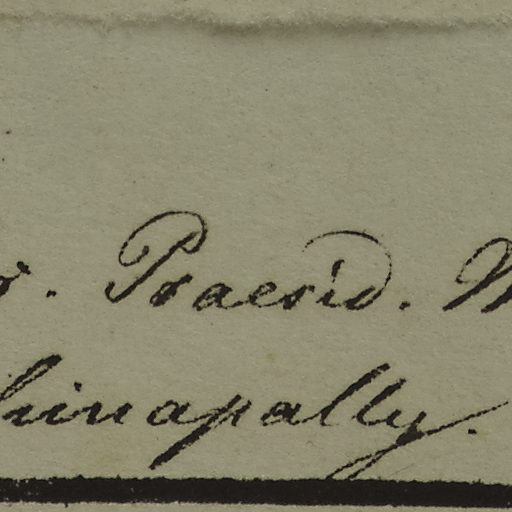 r. Praesid. M
hinapally.